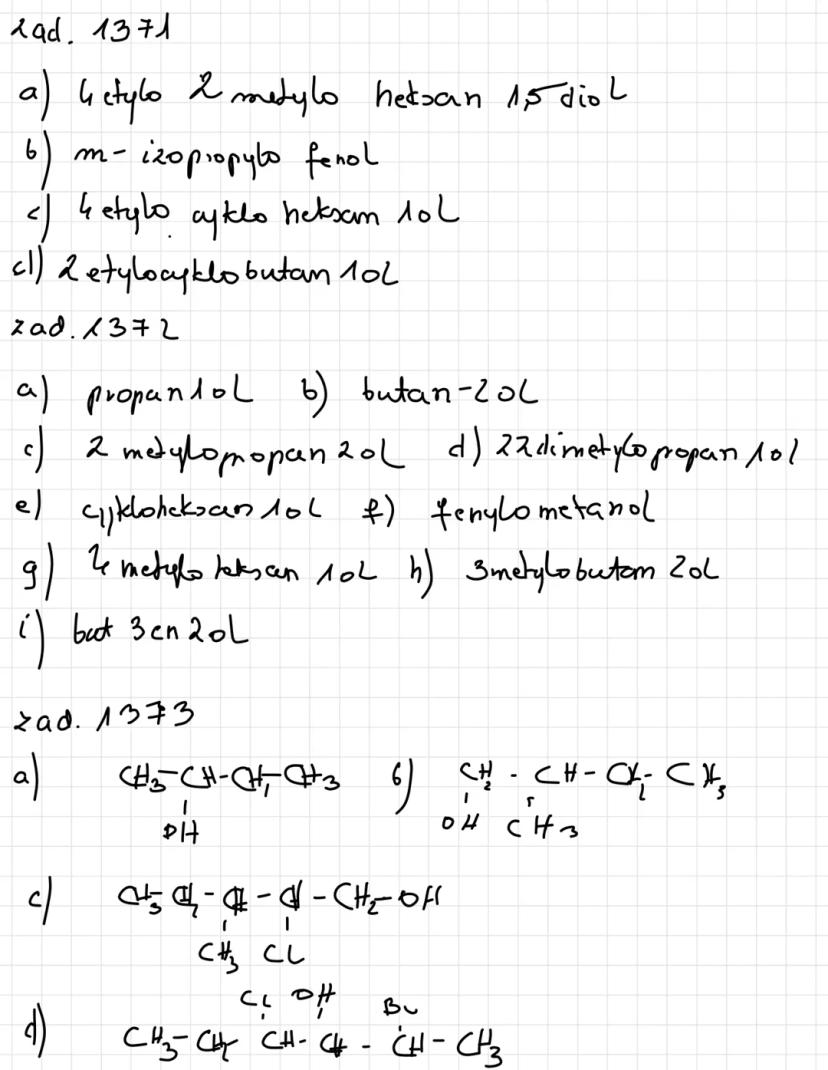 zad. 1371
a) 4 etylo 2 metylo heksan 1,5 diol
b) m- izopropylo fenol
c) 4 etylo cyklo heksan 1 ol
d) 2 etylocyklobutan 1 ol
zad. 1372
a) propan 1 ol b) butan-2 ol
c) 2 metylopropan 2 ol d) 22 dimetylopropan 1 ol
e) cykloheksan 1 ol f) fenylometanol
g) 4 metylo heksan 1 ol h) 3 metylobutan 2 ol
i) but 3 en 2 ol
zad. 1373
a) CH3-CH-CH2-CH3 b) CH2 - CH - CH2 - CH3
OH OH CH3
c) CH3 CH2 - CH - CH - CH2-OH
CH3 Cl
Cl OH Br
d) CH3-CH2 CH- CH - CH - CH3